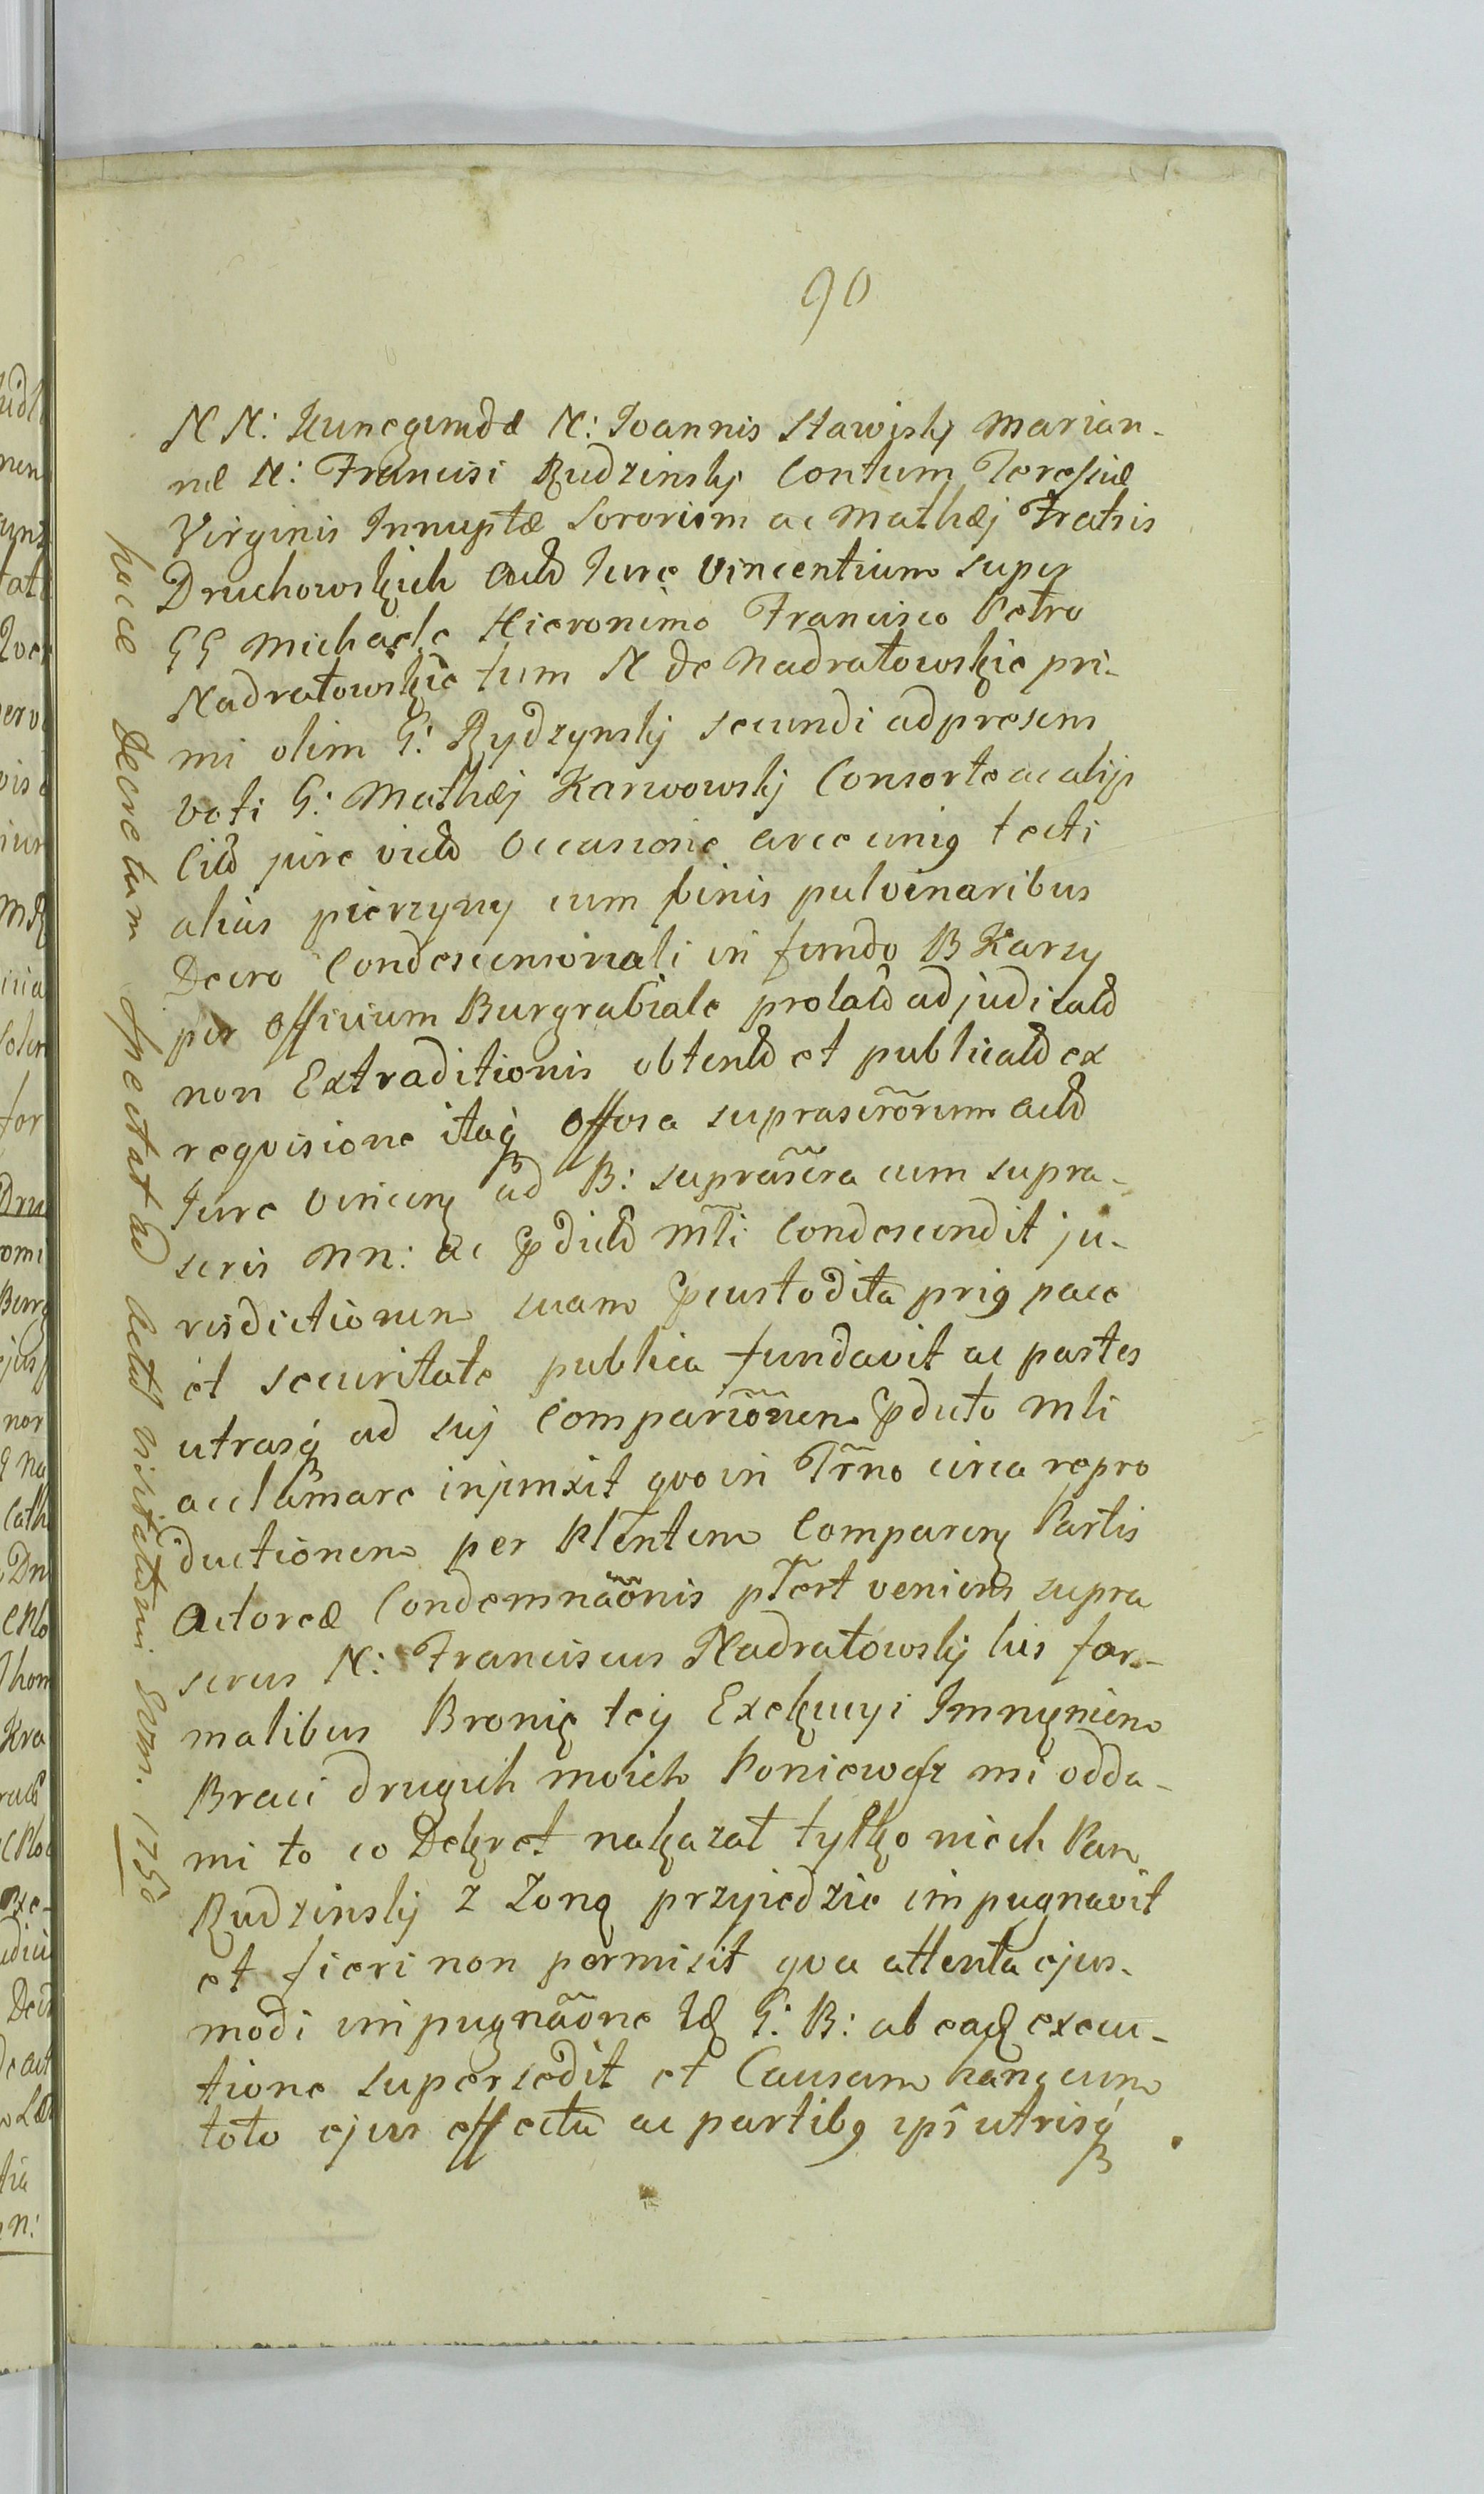 90
N N: Kunegundæ N: Joannis Stawisky Marian-
næ N: Francisi Rudzinsky Contum Teressiæ
Virginis Innuptæ Sororiom ac Mathæj Fratris
Druchowskich Jure Vincentium super
GG Michaele Hieronimo Francisco Petro
Nadratowskie tum N de Nadratowskie pri-
mi olim G: Rydzynsky secundi ad presens
voti G: Mathæj Karwowsky Consorte ac alijs
jure occasione arce unig tecti
alias pierzyny cum binis pulvinaribus
Decro Condescensionali in fundo B Karsy
per officium Burgrabiale
non Extraditionis et ex
reqvisione itaq offosa suprascrõrum
Jure ad B: suprãscra cum supra-
scris NN: ac mli condescendit ju-
risdictionem suam prig pace
et securitate publica fundavit ac partes
utrasq ad suj Compariõnem mli
acclamare injunxit qvo in Trno circa repro
ductionem per Comparen Partis
Actoreæ Condemnãonis veniens supra
scrus N: Franciscus Nadratowsky his for-
malibus Bronię tey Exekucyi Imnyniem
Braci drugich moich Poniewasz mi odda-
mi to co Dekret nakazał tylko niech Pan
Rudzinsky z Zoną przyiedzie impugnavit
et fieri non permisit qva attenta ejus-
modi impugnãone G: B: ab execu-
tione supersedit et Causam hanc cum
toto ejus effectu ac partibg ips utrisq
hocce Decretum Spectat ad 1750